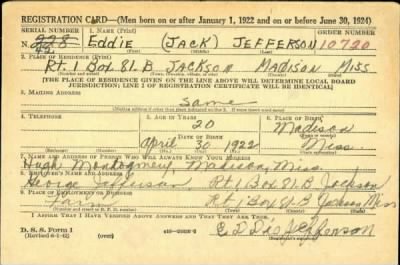 REGISTRATION CARD—(Men born on or after January 1, 1922 and on or before June 30, 1924)
SERIAL NUMBER 1. NAME (Print) ORDER NUMBER
N. 228 Eddie (JACK) JEFFERSON 10720
42 (First) (Middle) (Last)
2. PLACE OF RESIDENCE (Print)
Rt. 1 Box 81. B JACKSON MADISON MISS
[THE PLACE OF RESIDENCE GIVEN ON THE LINE ABOVE WILL DETERMINE LOCAL BOARD
JURISDICTION; LINE 2 OF REGISTRATION CERTIFICATE WILL BE IDENTICAL]
3. MAILING ADDRESS
Same
4. TELEPHONE 5. AGE IN YEARS 6. PLACE OF BIRTH
20 Madison
DATE OF BIRTH
April 30 1922 Miss.
7. NAME AND ADDRESS OF PERSON WHO WILL ALWAYS KNOW YOUR ADDRESS
Hugh Montgomery, Madison, Miss.
8. EMPLOYER'S NAME AND ADDRESS
George Rt. 1 Box 81. B Jackson
9. PLACE OF EMPLOYMENT OR BUSINESS
Farm Rt. 1 Box 81-B Jackson Miss
I AFFIRM THAT I HAVE VERIFIED ABOVE ANSWERS AND THAT THEY ARE TRUE.
D. S. S. Form 1
(Revised 6-1-42) (over)